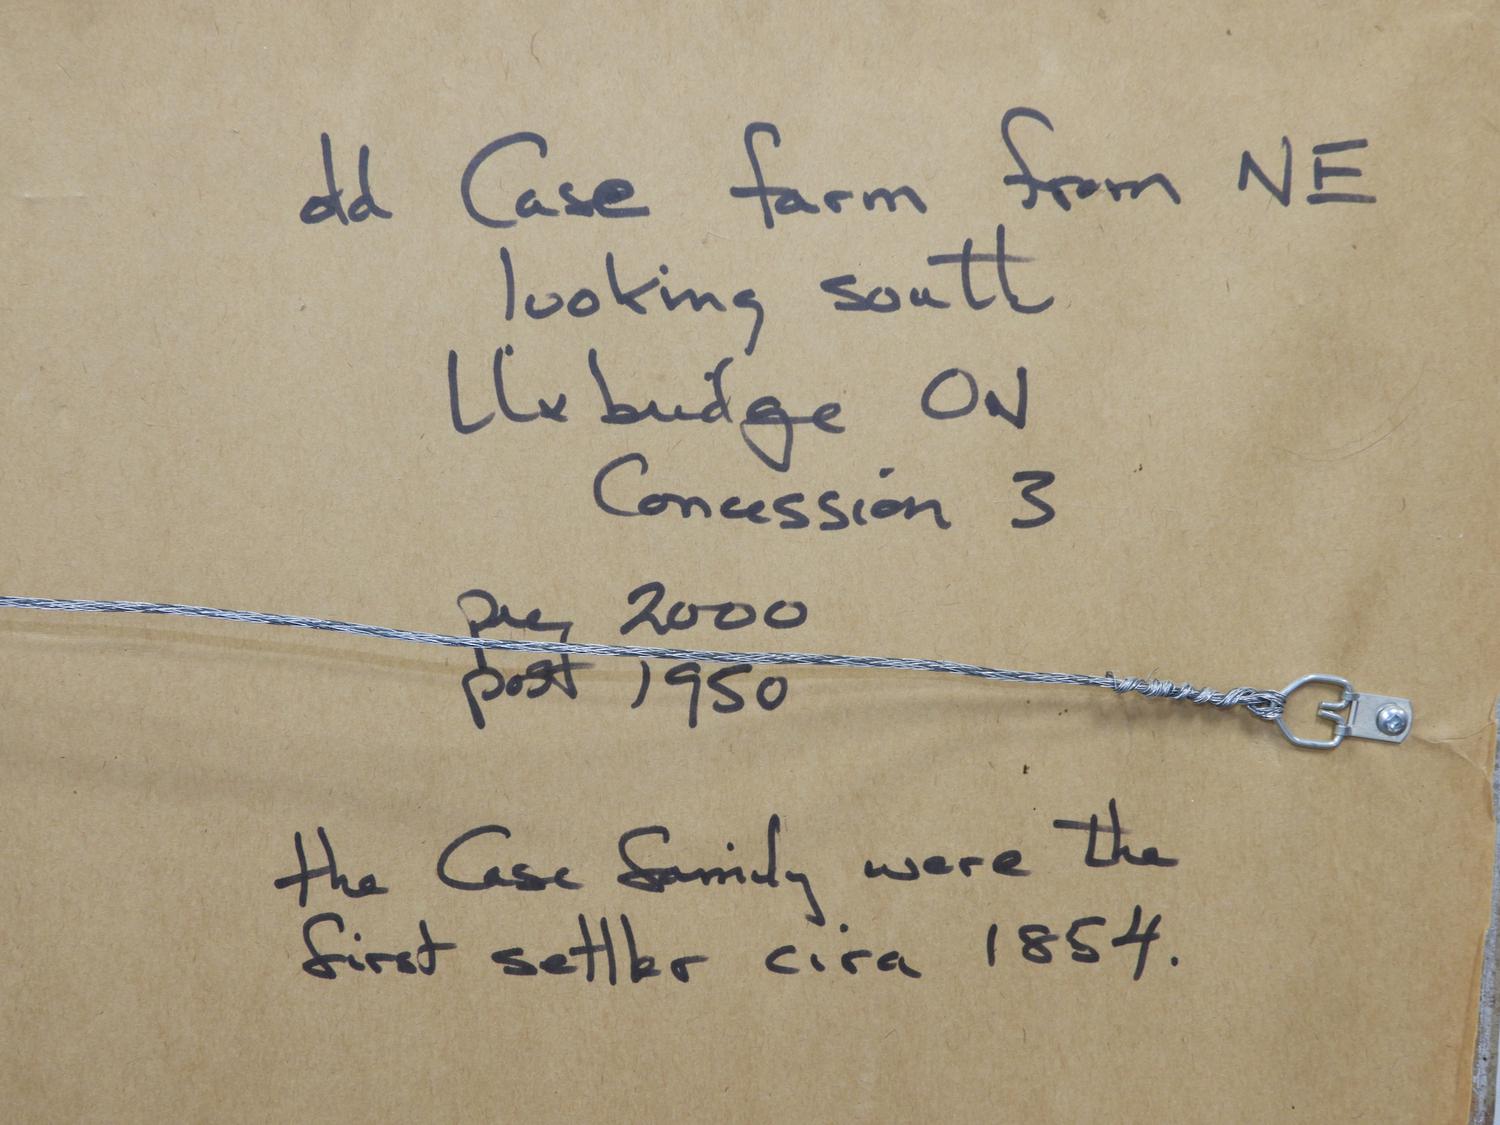 old Case farm from NE
looking south
Uxbridge ON
Concession 3
pre 2000
post 1950
the Case family were the
first settler cira 1854.